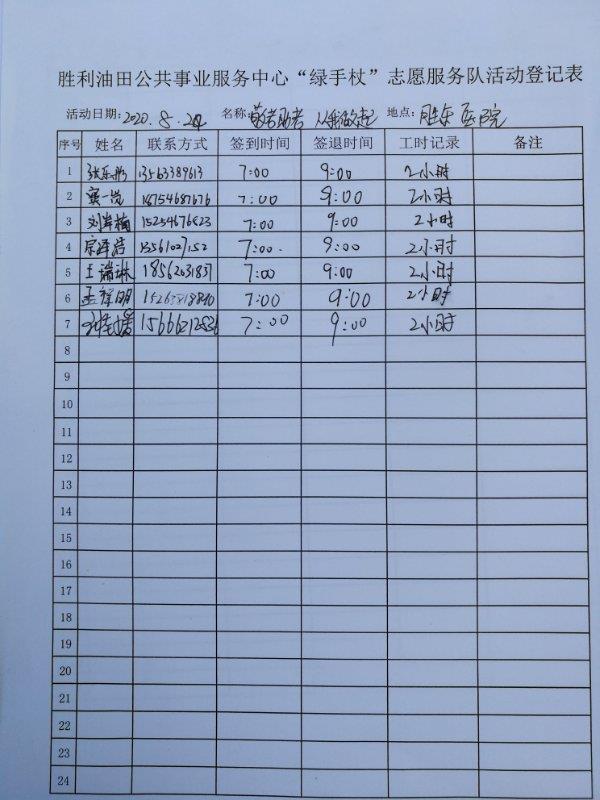 胜利油田公共事业服务中心“绿手杖”志愿服务队活动登记表
活动日期:2020.8.24 名称:敬老助老 从我做起 地点:胜东医院
序号 姓名 联系方式 签到时间 签退时间 工时记录 备注
1 张乐彤 13563389613 7:00 9:00 2小时
2 龚一岚 18754687676 7:00 9:00 2小时
3 刘岸楠 15254676823 7:00 9:00 2小时
4 宗泽浩 13561027152 7:00 9:00 2小时
5 王瑞琳 18562031837 7:00 9:00 2小时
6 孟祥明 7:00 9:00 2小时
7 15666212526 7:00 9:00 2小时
8
9
10
11
12
13
14
15
16
17
18
19
20
21
22
23
24